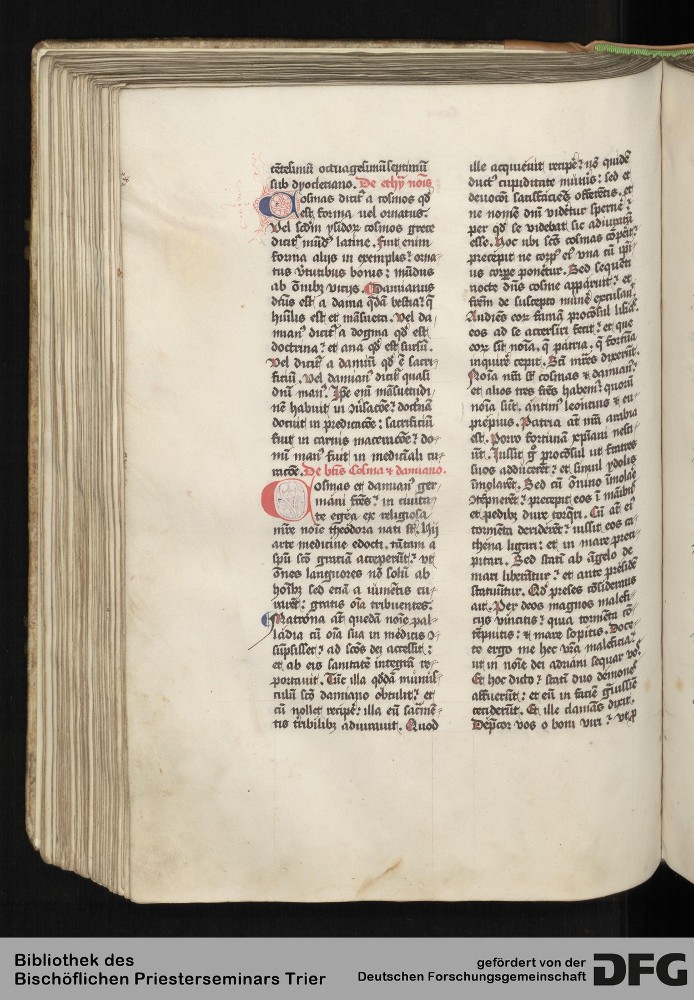 centesimū octuagesimū septimū
sub dyocletiano. De ethy nois
Cosmas dicit' a cosmos qd
est forma uel ornatus.
Vel scdm ysidor cosmos grece
dicit' mūd' latine. Fuit enim
forma alijs in exemplis? orna-
tus v'tutibus bonus: mūdus
ab omībz vicijs. Damianus
dictus est a dama qdā bestia? q
hūilis est et māsueta. Vel da-
mian' dicit' a dogma qd est
doctrina? et ana qd est sursū.
Vel dicit' a damiū qd ē sacri-
ficiū. Vel damian' dicit' quasi
dnī man'. Ipe enī māsuetudi-
nē habuit in cōuersacōe? doctrinā
docuit in predicacōe: sacrificiū
fuit in carnis maceracōe? do-
mī man' fuit in medicinali cu-
racōe. De btīs Cosma et damiano.
Cosmas et damian' ger-
māni frēs? in ciuita-
te egea ex religiosa
mr̄e noīe theodora nati st. Hij
arte medicine edocti. tātam a
spū scō graciā acceperūt? vt
ōnes languores nō solū ab
hoībz sed etiā a iumētis cu-
rarēt: gratis oīa tribuentes.
Matrona aūt quedā noīe pal-
ladia cū oīa sua in medicis 9-
sūpsisset? ad scōs dei accessit:
et ab eis sanitatē integrā re-
portauit. Tūc illa qddā munus-
culū scō damiano obtulit? et
cū nollet recipe: illa eū sacmē-
tis tribilibz adiurauit. Quod
ille acquieuit recipe? nō quidē
duct' cupiditate mūnis: sed et
deuocōi satisfaciēs offerētis. et
ne nomē dnī vidētur spernē?
per qd se videbat sic adiuratū
esse. Hoc ubi scs cosmas cōperit?
precepit ne corp' ei' vna cū ipī-
us corpe ponētur. Sed sequēti
nocte dns cosme apparuit? et
frēm de suscepto mūnē excusauit.
Audiēs eor famā procōsul lisias
eos ad se accersiri fecit? et que
eor sīt noīa, q patria, q fortūa
inquirē cepit. Scī mr̄es dixerūt.
Noīa nrā st cosmas et damian?
et alios tres frēs habem? quorū
noīa sūt. antim' leontius et eu-
prepius. Patria aūt nrā arabia
est. Porro fortunā xpīani nesci-
ūt. Iussit g procōsul ut fratres
suos adducerēt? et simul ydolis
imolarēt. Sed cū ōnino imolare
9tēpnerēt? precepit eos ī manibz
et pedibz dure torqri. Cū aūt eī'
tormēta deridērēt? iussit eos ca-
thena ligari: et in mare preci-
pitari. Sed statī ab āgelo de
mari liberātur? et ante presidē
statuūtur. Qd preses cōsiderans
ait. Per deos magnos malefi-
cijs vincitis? quia tormēta cō-
tēpnitis? et mare sopitis. Doce-
te ergo me hec vrā maleficia?
ut in noīe dei adriani sequar vos
Et hoc dicto? statī duo demones
affuerūt? et eū in facie grauissime
ceciderūt. Et ille clamās dixit.
Deprcor vos o boni viri? vt p
Bibliothek des
Bischöflichen Priesterseminars Trier
gefördert von der
Deutschen Forschungsgemeinschaft
DFG